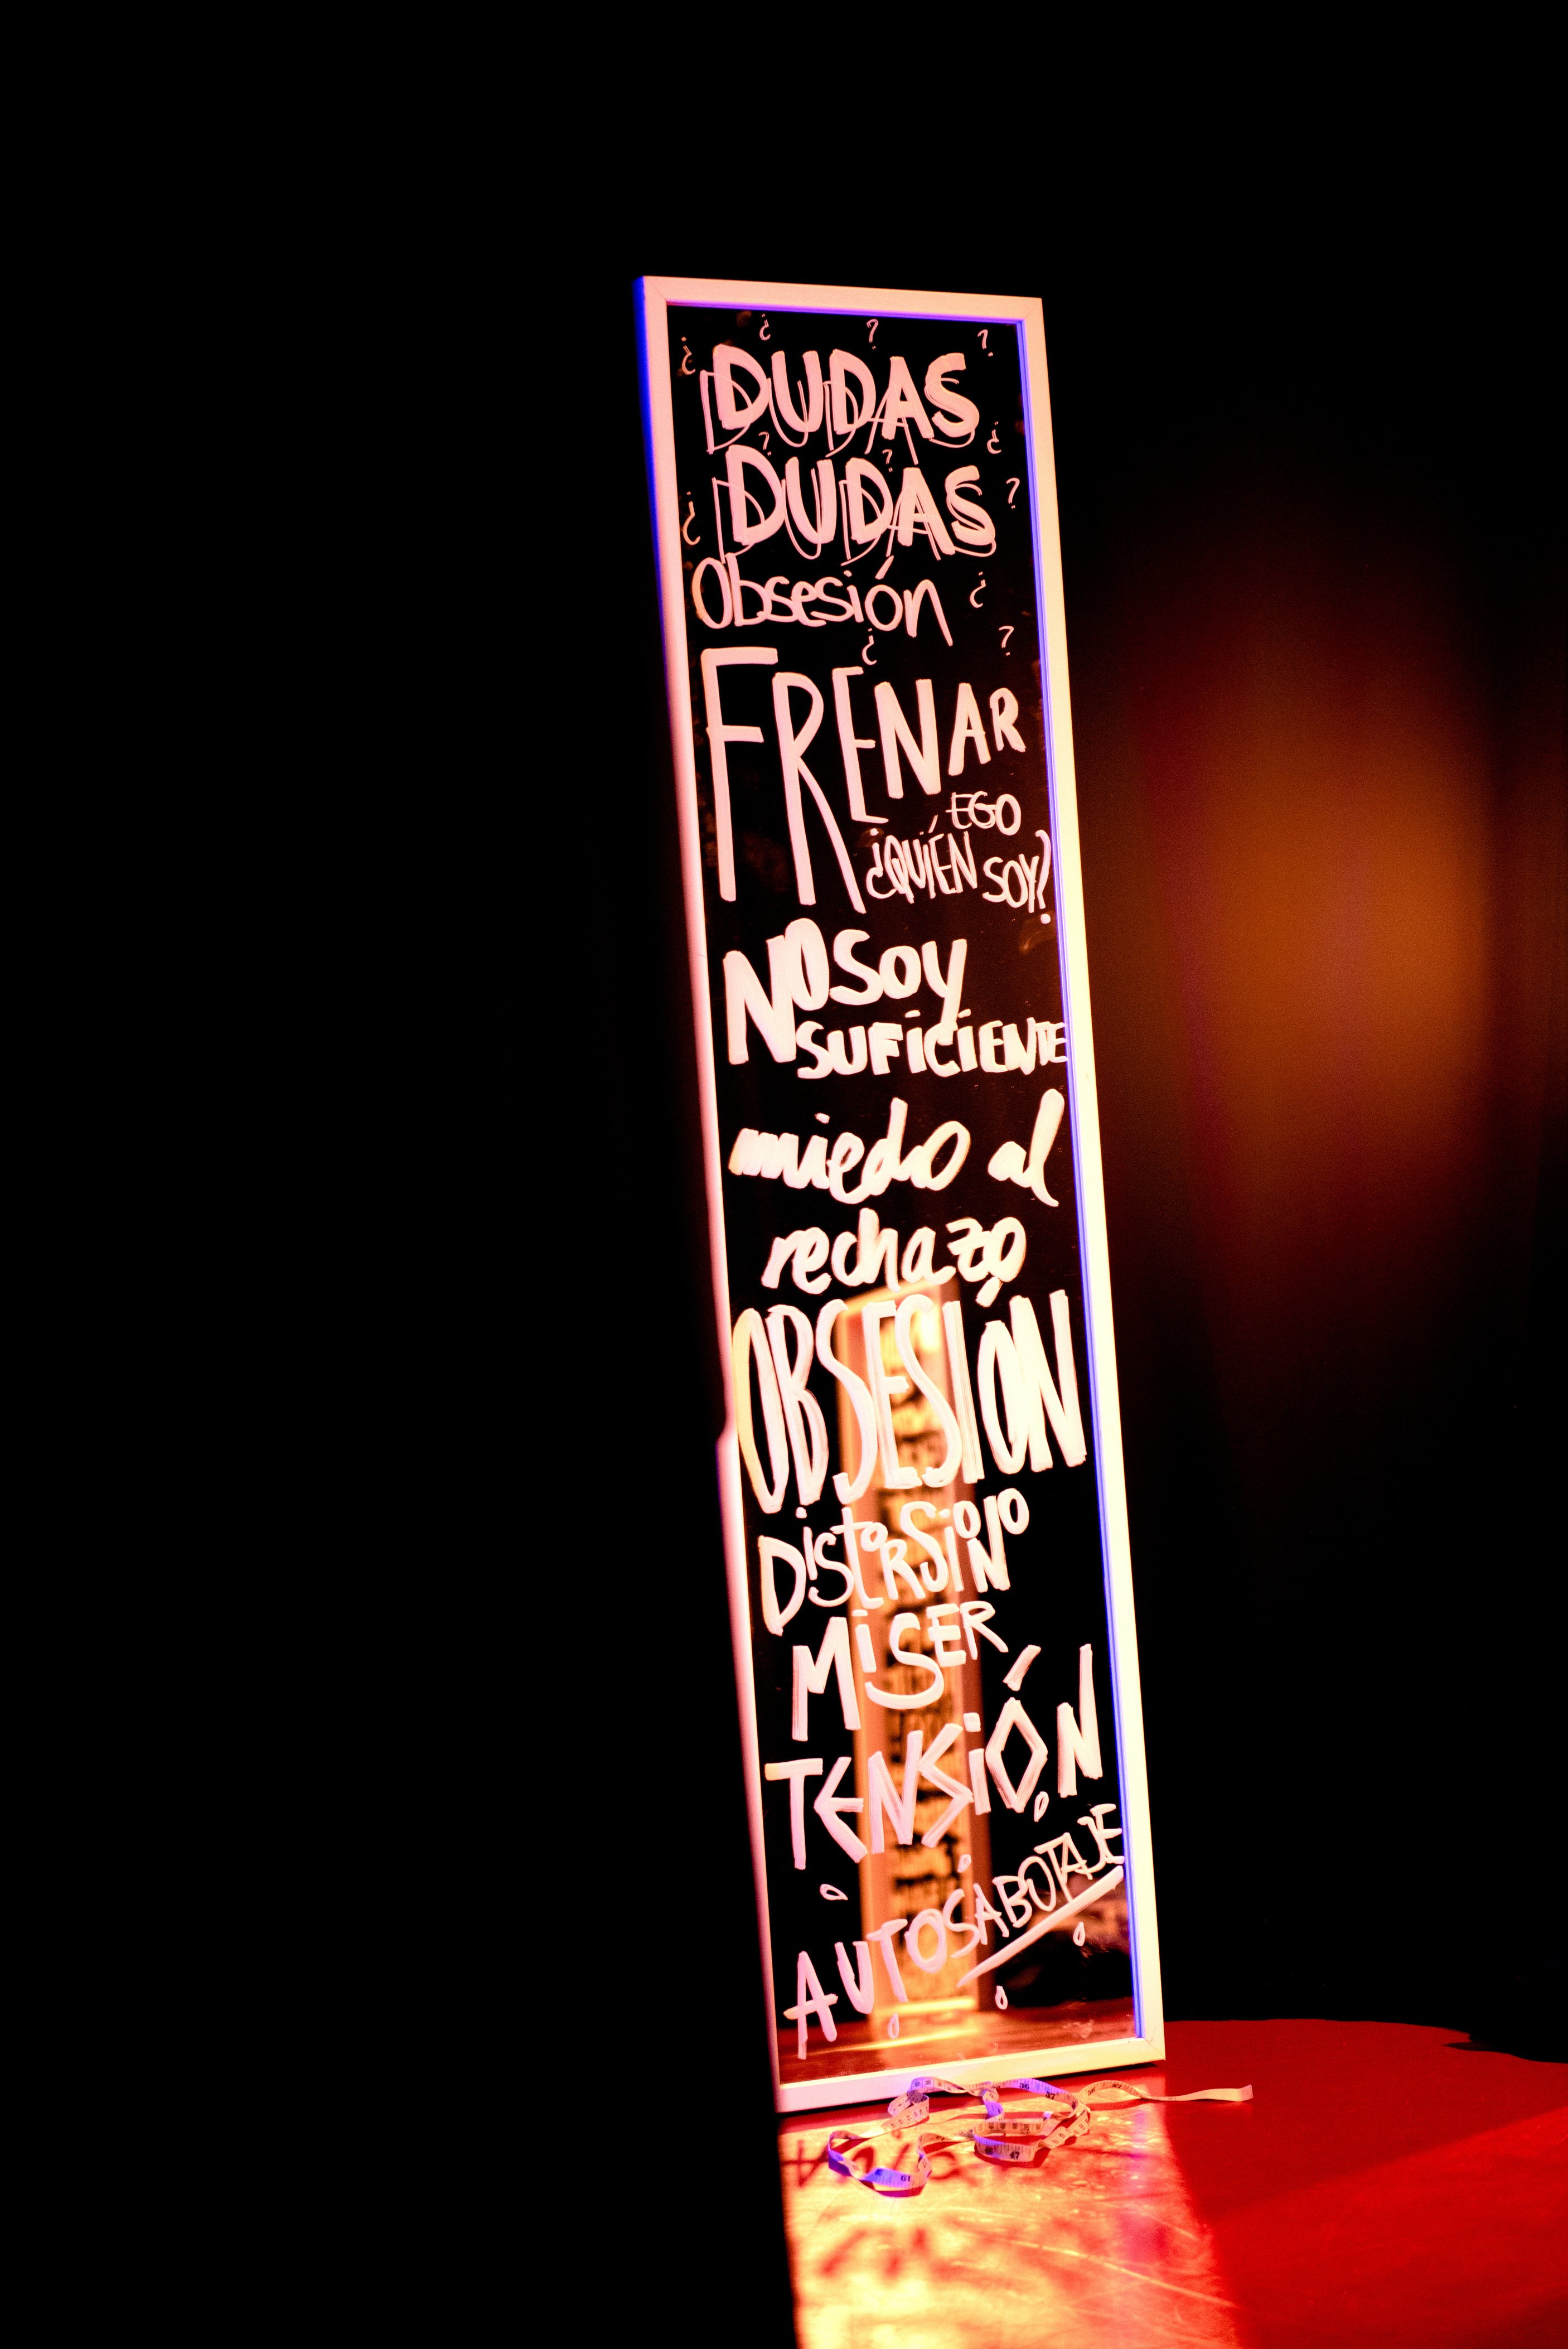 ¿ ¿ ? ?
DUDAS
¿ ? ?
DUDAS
¿ ?
Obsesión ¿
¿ ?
FRENAR
EGO
¿QUIÉN SOY?
NO SOY
SUFICIENTE
miedo al
rechazo
OBSESIÓN
DistoRSioNo
Mi SER
TENSiÓN
AUTOSABOTAJE